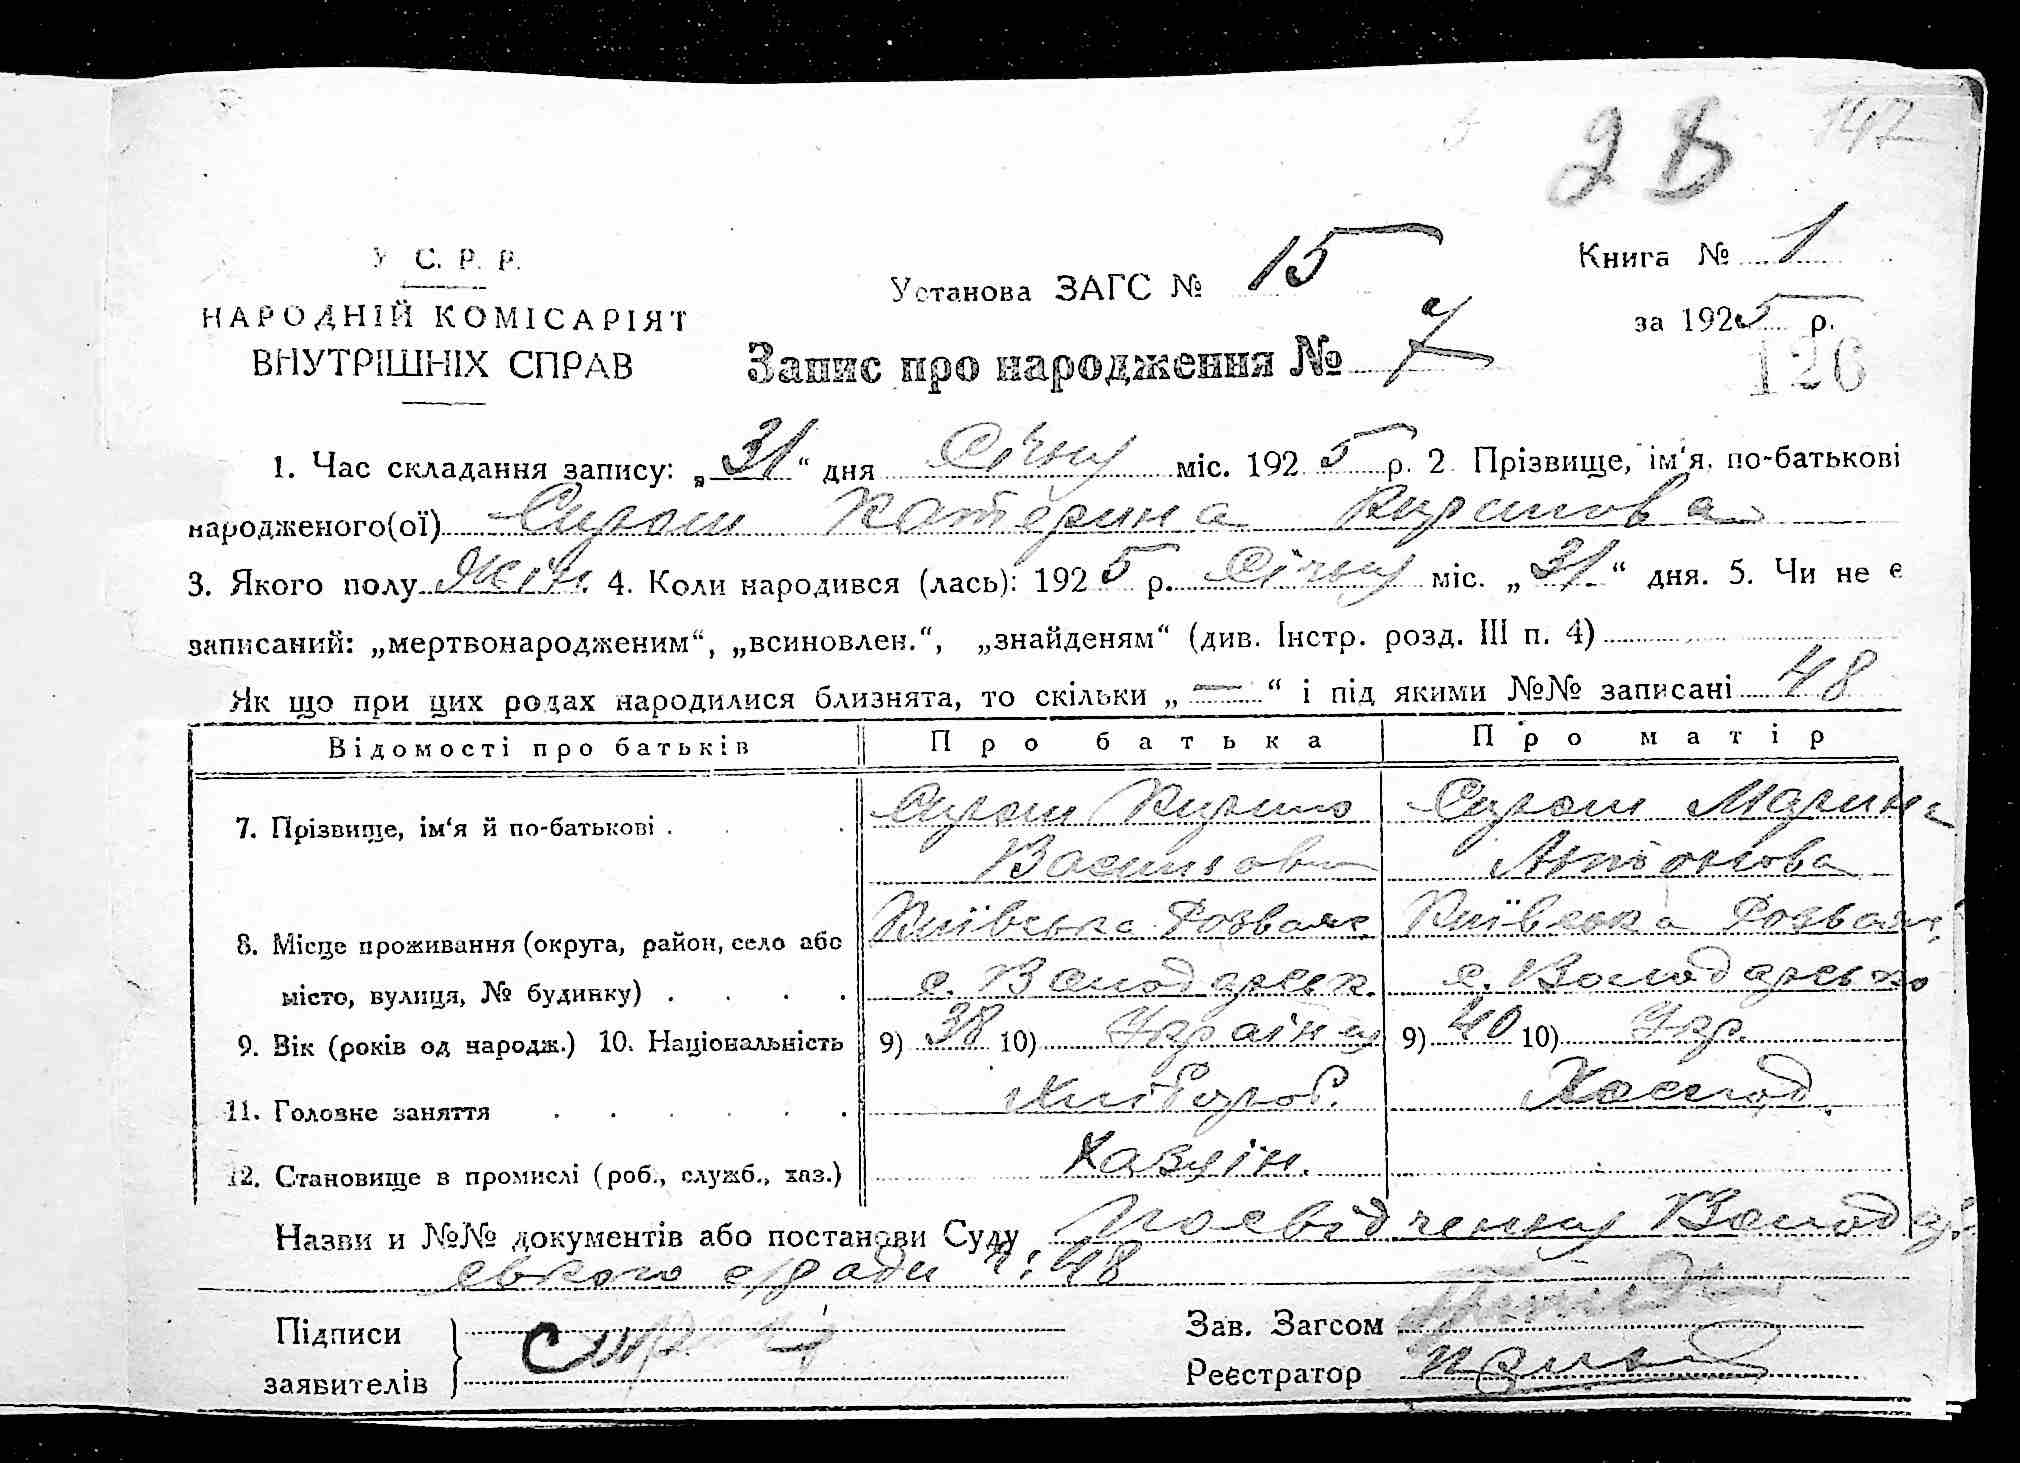 2 В 147
У С. Р. Р.
НАРОДНІЙ КОМІСАРІЯТ
ВНУТРІШНІХ СПРАВ
Установа ЗАГС № 15
Книга № 1
за 1925 р.
126
Запис про народження № 7
1. Час складання запису: „31“ дня Січня міс. 1925 р. 2 Прізвище, ім‘я, по-батькові
народженого(ої) Сирош Катерина Кирилова
3. Якого полу жін. 4. Коли народився (лась): 1925 р. Січня міс. „31“ дня. 5. Чи не є
записаний: „мертвонародженим“, „всиновлен.“, „знайденям“ (див. Інстр. розд. III п. 4)
Як що при цих родах народилися близнята, то скільки „—“ і під якими №№ записані 48
Відомості про батьків Про батька Про матір
7. Прізвище, ім‘я й по-батькові . Сирош Кирило Сирош Марина
Васильов Антонова
8. Місце проживання (округа, район, село або Київська Розваж. Київська Розваж.
місто, вулиця, № будинку) . . . . с. Володарськ. с. Володарсько
9. Вік (років од народж.) 10. Національність 9) 38 10) Українц 9) 40 10) Укр.
11. Головне заняття . . . . . . Хлібороб. Хасяод.
12. Становище в промислі (роб., служб., хаз.) Хазяїн.
Назви и №№ документів або постанови Суду Посвідчення Володар-
ського с/ради ч: 48
Підписи
заявителів Сирош
Зав. Загсом
Реєстратор